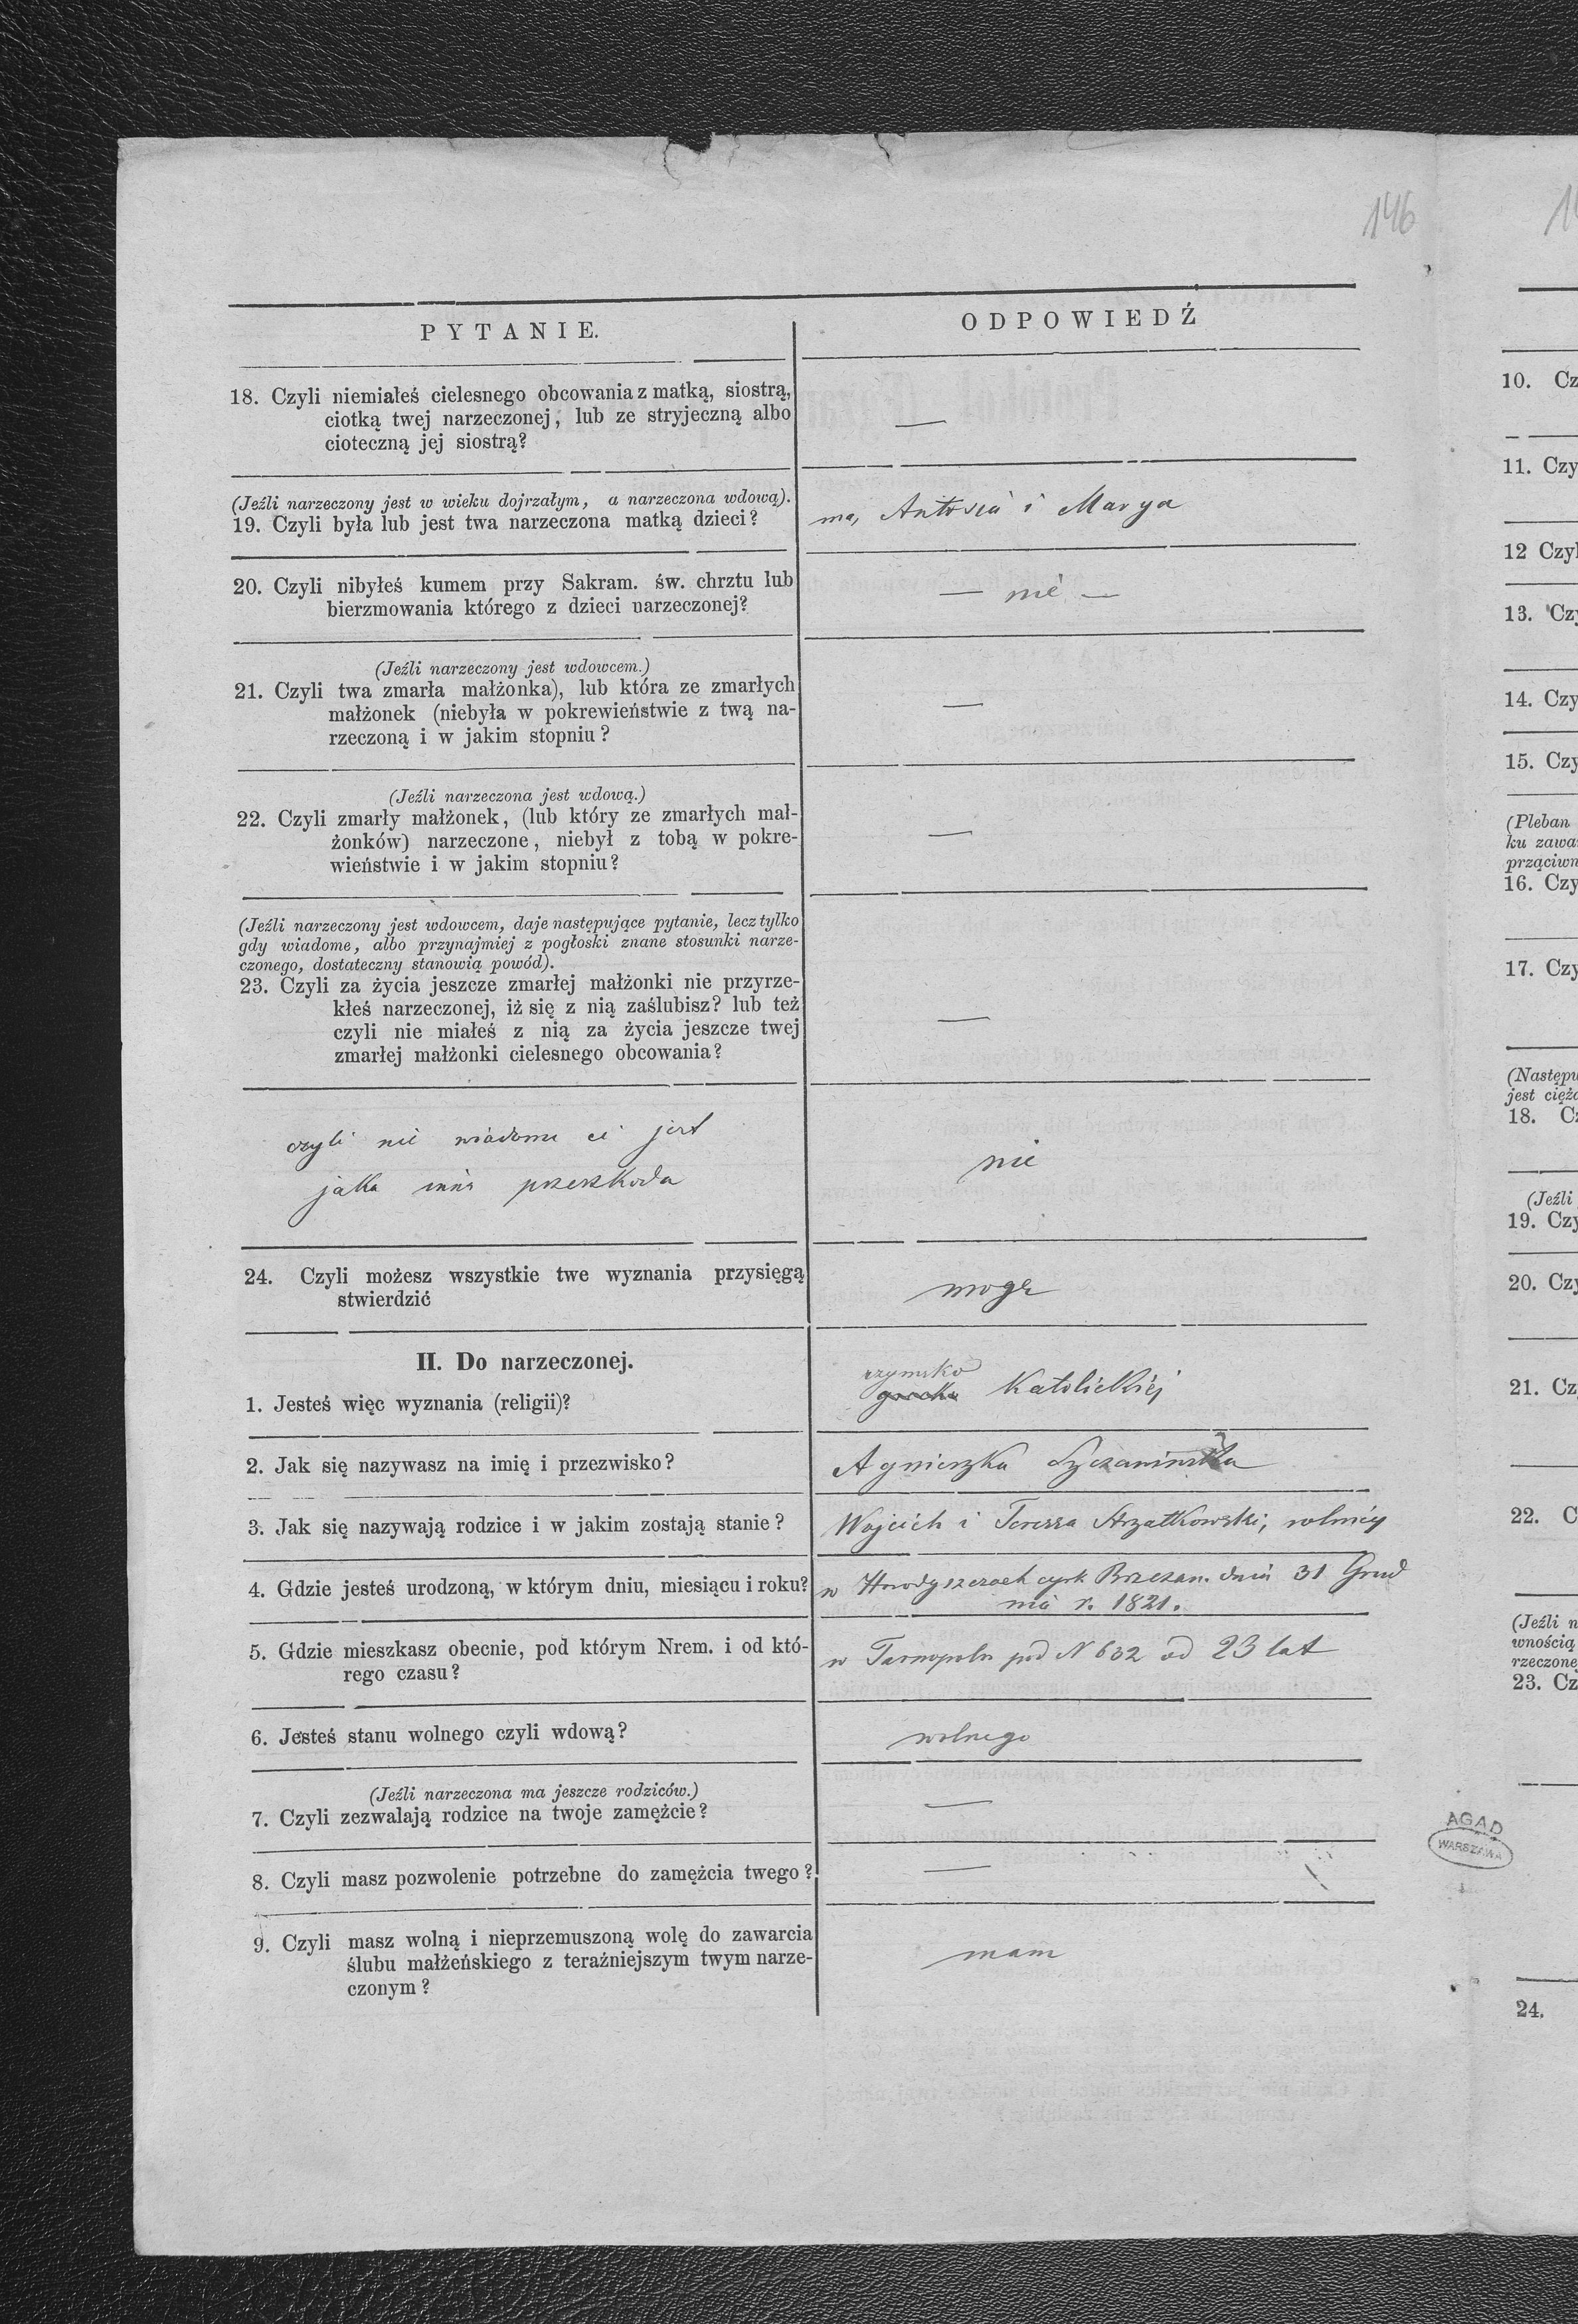 146
PYTANIE.
ODPOWIEDŹ
18. Czyli niemiałeś cielesnego obcowania z matką, siostrą,
ciotką twej narzeczonej, lub ze stryjeczną albo
cioteczną jej siostrą?
—
(Jeźli narzeczony jest w wieku dojrzałym, a narzeczona wdową).
19. Czyli była lub jest twa narzeczona matką dzieci?
ma, Antosia i Marya
20. Czyli nibyłeś kumem przy Sakram. św. chrztu lub
bierzmowania którego z dzieci narzeczonej?
— nie —
(Jeźli narzeczony jest wdowcem.)
21. Czyli twa zmarła małżonka), lub która ze zmarłych
małżonek (niebyła w pokrewieństwie z twą na-
rzeczoną i w jakim stopniu?
—
(Jeźli narzeczona jest wdową.)
22. Czyli zmarły małżonek, (lub który ze zmarłych mał-
żonków) narzeczone, niebył z tobą w pokre-
wieństwie i w jakim stopniu?
—
(Jeźli narzeczony jest wdowcem, daje następujące pytanie, lecz tylko
gdy wiadome, albo przynajmiej z pogłoski znane stosunki narze-
czonego, dostateczny stanowią powód).
23. Czyli za życia jeszcze zmarłej małżonki nie przyrze-
kłeś narzeczonej, iż się z nią zaślubisz? lub też
czyli nie miałeś z nią za życia jeszcze twej
zmarłej małżonki cielesnego obcowania?
—
czyli nie wiadoma ci jest
jaka inna przeszkoda
nie
24. Czyli możesz wszystkie twe wyznania przysięgą
stwierdzić
mogę
II. Do narzeczonej.
1. Jesteś więc wyznania (religii)?
rzymsko
grecko Katolickiej
2. Jak się nazywasz na imię i przezwisko?
Agnieszka
3. Jak się nazywają rodzice i w jakim zostają stanie?
Wojciech i Teressa rolnicy
4. Gdzie jesteś urodzoną, w którym dniu, miesiącu i roku?
w cyrk Brzezan. dnia 31 Grud
nia r. 1821.
5. Gdzie mieszkasz obecnie, pod którym Nrem. i od któ-
rego czasu?
w Tarnopolu pod N 632 od 23 lat
6. Jesteś stanu wolnego czyli wdową?
wolnego
(Jeźli narzeczona ma jeszcze rodziców.)
7. Czyli zezwalają rodzice na twoje zamężcie?
—
8. Czyli masz pozwolenie potrzebne do zamężcia twego?
—
9. Czyli masz wolną i nieprzemuszoną wolę do zawarcia
ślubu małżeńskiego z teraźniejszym twym narze-
czonym?
mam
10. Cz
11. Czy
12 Czyl
13. Czy
14. Czy
15. Czy
(Pleban
ku zawa
prząciwn
16. Czy
17. Czy
(Następu
jest cięż
18. Cz
(Jeźli
19. Czy
20. Czy
21. Cz
22. C
(Jeźli n
wnością
rzeczone
23. Cz
24.
AGAD
WARSZAWA